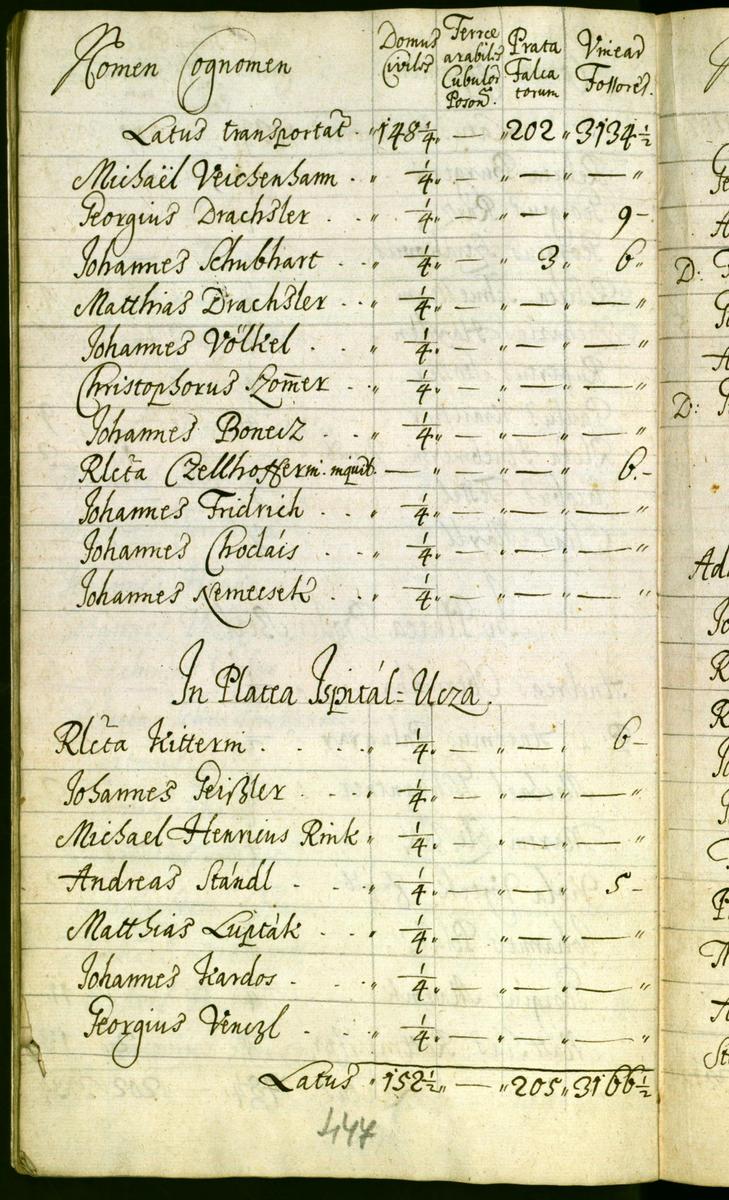 Nomen Cognomen Domus Civiles Terrae arabiles Cubulor Poson. Prata Falcatorum Vinear Fossores.
Latus transportat. " 148 1/4 " — " 202 " 3134 1/2
Michaël Veichenhann . " 1/4 " — " — " — "
Georgius Drachsler . . " 1/4 " — " — " 9 –
Johannes Schubhart . . " 1/4 " — " 3 " 6 "
Matthias Drachsler . . " 1/4 " — " — " — "
Johannes Völkel . . . " 1/4 " — " — " — "
Christophorus Szom̄er . . " 1/4 " — " — " — "
Johannes Bonecz . . " 1/4 " — " — " — "
Rlcta Czellhofferin inquil. — " — " — " 6. –
Johannes Fridrich . . " 1/4 " — " — " — "
Johannes Chodais . . " 1/4 " — " — " — "
Johannes Nemecsek . . " 1/4 " — " — " — "
In Platea Ispitál = Ucza.
Rlcta Kitterin . . . . " 1/4 " — " — " 6 –
Johannes Geißler . . " 1/4 " — " — " — "
Michael Henricus Rink " 1/4 " — " — " — "
Andreas Stándl . . . " 1/4 " — " — " 5 –
Matthias Lupták . . " 1/4 " — " — " — "
Johannes Kardos . . " 1/4 " — " — " — "
Georgius Venczl . . . " 1/4 " — " — " — "
Latus " 152 1/2 " — " 205 " 3166 1/2
447